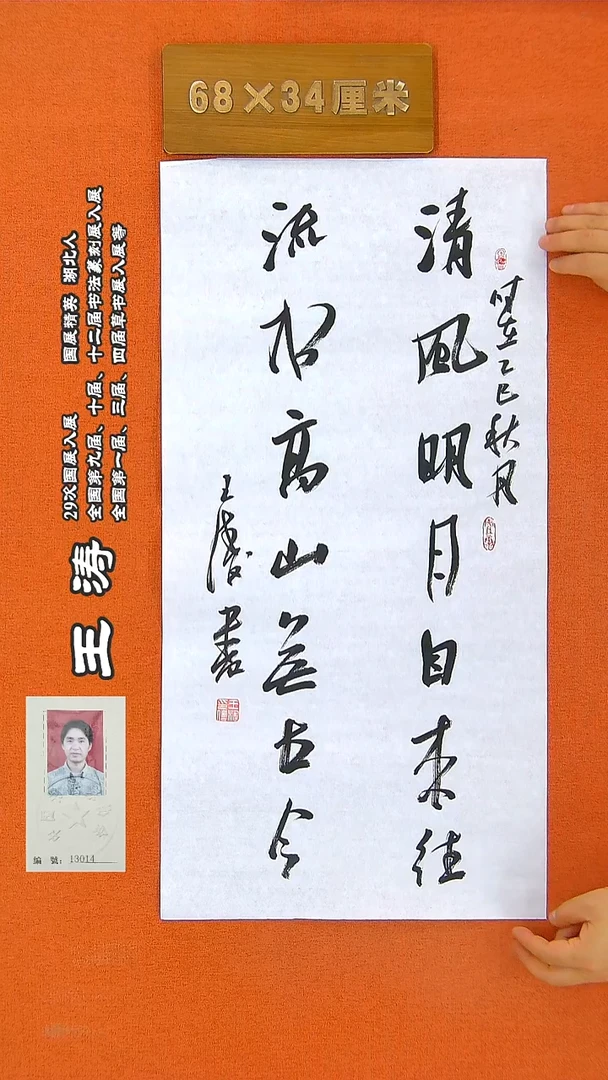 68×34厘米
清風明月自来往
流水高山無古今
时在乙巳秋月
王涛书
王涛
29次国展入展 国展精英 湖北人
全国第九届、十届、十二届书法篆刻展入展
全国第一届、三届、四届草书展入展等
編號：13014